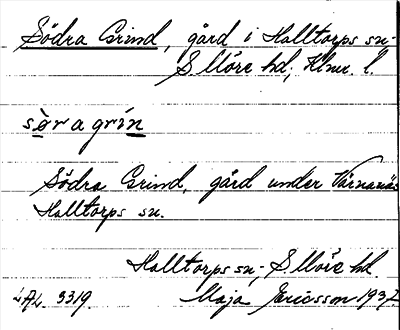 Södra Grind, gård i Halltorps sn.
S. Möre hd; Klmr. l.
sö̀ra grín
Södra Grind, gård under Värnanäs
Halltorps sn.
Halltorps sn; S. Möre hd.
LAL. 3319. Maja Ericsson 1937.